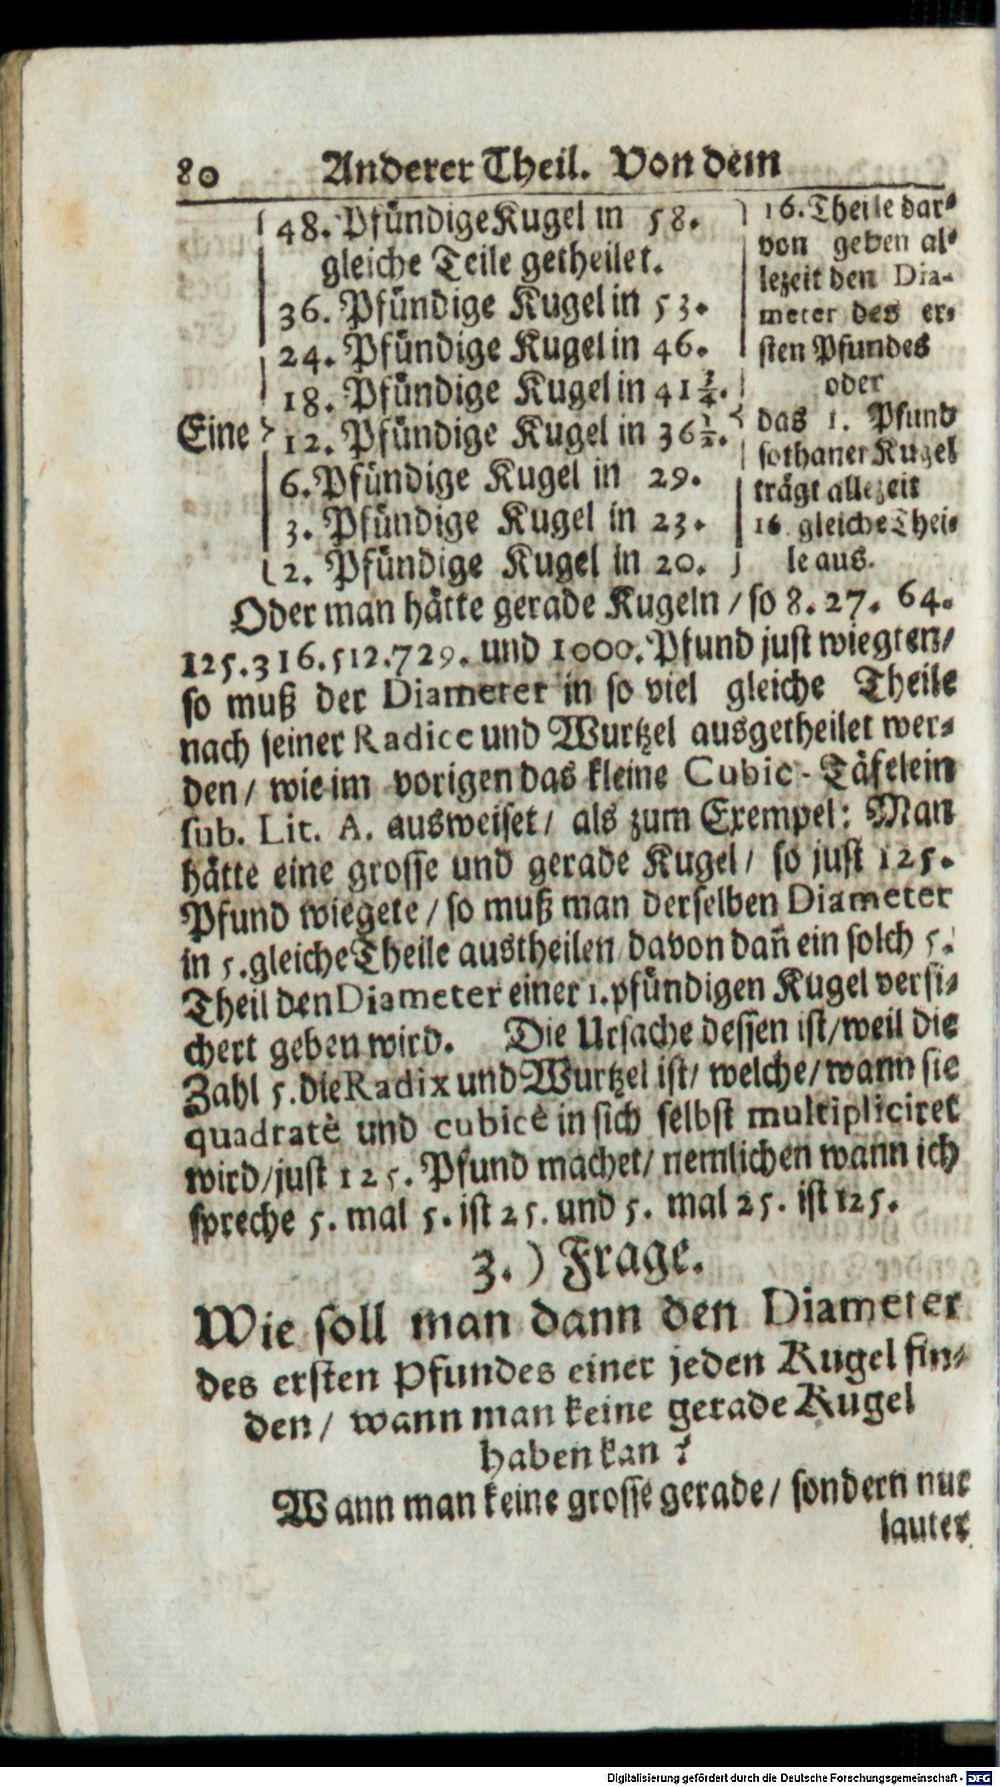 80 Anderer Theil. Von dem
48. Pfündige Kugel in 58.
gleiche Teile getheilet.
36. Pfündige Kugel in 53.
24. Pfündige Kugel in 46.
18. Pfündige Kugel in 41¾.
Eine 12. Pfündige Kugel in 36½.
6. Pfündige Kugel in 29.
3. Pfündige Kugel in 23.
2. Pfündige Kugel in 20.
16. Theile dar-
von geben al-
lezeit den Dia-
meter des er-
sten Pfundes
oder
das 1. Pfund
sothaner Kugel
trägt allezeit
16 gleiche Thei-
le aus.
Oder man hätte gerade Kugeln / so 8. 27. 64.
125. 316. 512. 729. und 1000. Pfund just wiegten/
so muß der Diameter in so viel gleiche Theile
nach seiner Radice und Wurtzel ausgetheilet wer-
den / wie im vorigen das kleine Cubic-Täfelein
sub. Lit. A. ausweiset / als zum Exempel: Man
hätte eine grosse und gerade Kugel / so just 125.
Pfund wiegete / so muß man derselben Diameter
in 5. gleiche Theile austheilen davon dañ ein solch 5.
Theil den Diameter einer 1. pfündigen Kugel versi-
chert geben wird. Die Ursache dessen ist / weil die
Zahl 5. die Radix und Wurtzel ist / welche / wann sie
quadratè und cubicè in sich selbst multipliciret
wird / just 125. Pfund machet / nemlichen wann ich
spreche 5. mal 5. ist 25. und 5. mal 25. ist 125.
3.) Frage.
Wie soll man dann den Diameter
des ersten Pfundes einer jeden Kugel fin-
den / wann man keine gerade Kugel
haben kan?
Wann man keine grosse gerade / sondern nur
lauter
Digitalisierung gefördert durch die Deutsche Forschungsgemeinschaft - DFG